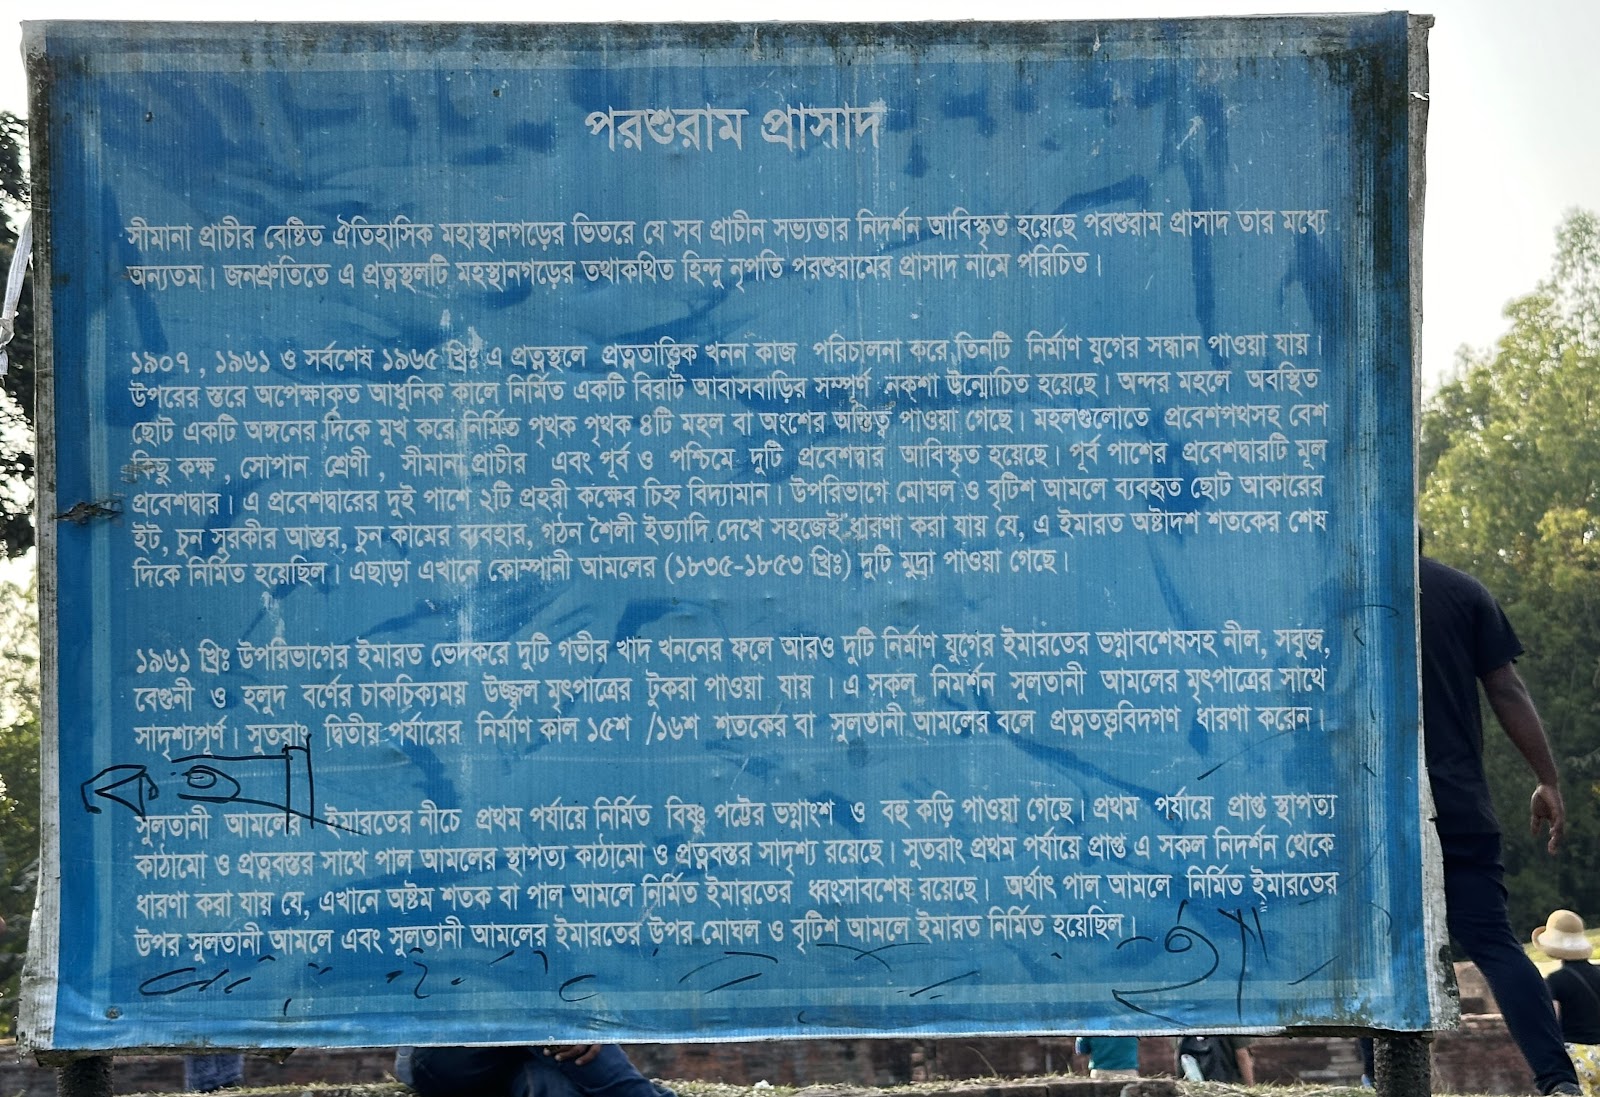 পরশুরাম প্রাসাদ
সীমানা প্রাচীর বেষ্টিত ঐতিহাসিক মহাস্থানগড়ের ভিতরে যে সব প্রাচীন সভ্যতার নিদর্শন আবিস্কৃত হয়েছে পরশুরাম প্রাসাদ তার মধ্যে
অন্যতম। জনশ্রুতিতে এ প্রত্নস্থলটি মহস্থানগড়ের তথাকথিত হিন্দু নৃপতি পরশুরামের প্রাসাদ নামে পরিচিত।
১৯০৭ , ১৯৬১ ও সর্বশেষ ১৯৬৫ খ্রিঃ এ প্রত্নস্থলে প্রত্নতাত্ত্বিক খনন কাজ পরিচালনা করে তিনটি নির্মাণ যুগের সন্ধান পাওয়া যায়।
উপরের স্তরে অপেক্ষাকৃত আধুনিক কালে নির্মিত একটি বিরাট আবাসবাড়ির সম্পূর্ণ নকশা উন্মোচিত হয়েছে। অন্দর মহলে অবস্থিত
ছোট একটি অঙ্গনের দিকে মুখ করে নির্মিত পৃথক পৃথক ৪টি মহল বা অংশের অস্তিত্ব পাওয়া গেছে। মহলগুলোতে প্রবেশপথসহ বেশ
কিছু কক্ষ , সোপান শ্রেণী , সীমানা প্রাচীর এবং পূর্ব ও পশ্চিমে দুটি প্রবেশদ্বার আবিস্কৃত হয়েছে। পূর্ব পাশের প্রবেশদ্বারটি মূল
প্রবেশদ্বার। এ প্রবেশদ্বারের দুই পাশে ২টি প্রহরী কক্ষের চিহ্ন বিদ্যামান। উপরিভাগে মোঘল ও বৃটিশ আমলে ব্যবহৃত ছোট আকারের
ইট, চুন সুরকীর আস্তর, চুন কামের ব্যবহার, গঠন শৈলী ইত্যাদি দেখে সহজেই ধারণা করা যায় যে, এ ইমারত অষ্টাদশ শতকের শেষ
দিকে নির্মিত হয়েছিল। এছাড়া এখানে কোম্পানী আমলের (১৮৩৫-১৮৫৩ খ্রিঃ) দুটি মুদ্রা পাওয়া গেছে।
১৯৬১ খ্রিঃ উপরিভাগের ইমারত ভেদকরে দুটি গভীর খাদ খননের ফলে আরও দুটি নির্মাণ যুগের ইমারতের ভগ্নাবশেষসহ নীল, সবুজ,
বেগুনী ও হলুদ বর্ণের চাকচিক্যময় উজ্জ্বল মৃৎপাত্রের টুকরা পাওয়া যায় । এ সকল নিমর্শন সুলতানী আমলের মৃৎপাত্রের সাথে
সাদৃশ্যপূর্ণ। সুতরাং দ্বিতীয় পর্যায়ের নির্মাণ কাল ১৫শ /১৬শ শতকের বা সুলতানী আমলের বলে প্রত্নতত্ত্ববিদগণ ধারণা করেন।
সুলতানী আমলের ইমারতের নীচে প্রথম পর্যায়ে নির্মিত বিষ্ণু পট্টের ভগ্নাংশ ও বহু কড়ি পাওয়া গেছে। প্রথম পর্যায়ে প্রাপ্ত স্থাপত্য
কাঠামো ও প্রত্নবস্তুর সাথে পাল আমলের স্থাপত্য কাঠামো ও প্রত্নবস্তুর সাদৃশ্য রয়েছে। সুতরাং প্রথম পর্যায়ে প্রাপ্ত এ সকল নিদর্শন থেকে
ধারণা করা যায় যে, এখানে অষ্টম শতক বা পাল আমলে নির্মিত ইমারতের ধ্বংসাবশেষ রয়েছে। অর্থাৎ পাল আমলে নির্মিত ইমারতের
উপর সুলতানী আমলে এবং সুলতানী আমলের ইমারতের উপর মোঘল ও বৃটিশ আমলে ইমারত নির্মিত হয়েছিল।